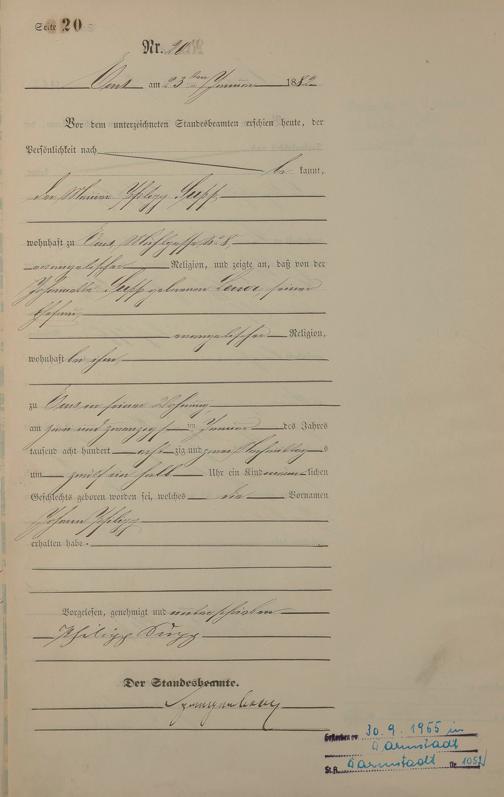 Seite 20
Nr. 20
Ems am 23ten Januar 1882
Vor dem unterzeichneten Standesbeamten erschien heute, der
Persönlichkeit nach
be kannt,
der Maurer Philipp Supp
wohnhaft zu Ems, No 8,
evangelischer Religion, und zeigte an, daß von der
Supp geborenen seiner
Ehefrau,
evangelischer Religion,
wohnhaft bei ihm
zu Ems in seiner Wohnung
am zwei und zwanzigsten Januar des Jahres
tausend acht hundert acht zig und zwei Nachmittags
um Uhr ein Kind männ lichen
Geschlechts geboren worden sei, welches die Vornamen
Johann Philipp
erhalten habe.
Vorgelesen, genehmigt und unterschrieben
Philipp Supp
Der Standesbeamte.
Gestorben 30.9.1955 in
Darmstadt
St.A. Darmstadt Nr. 1052